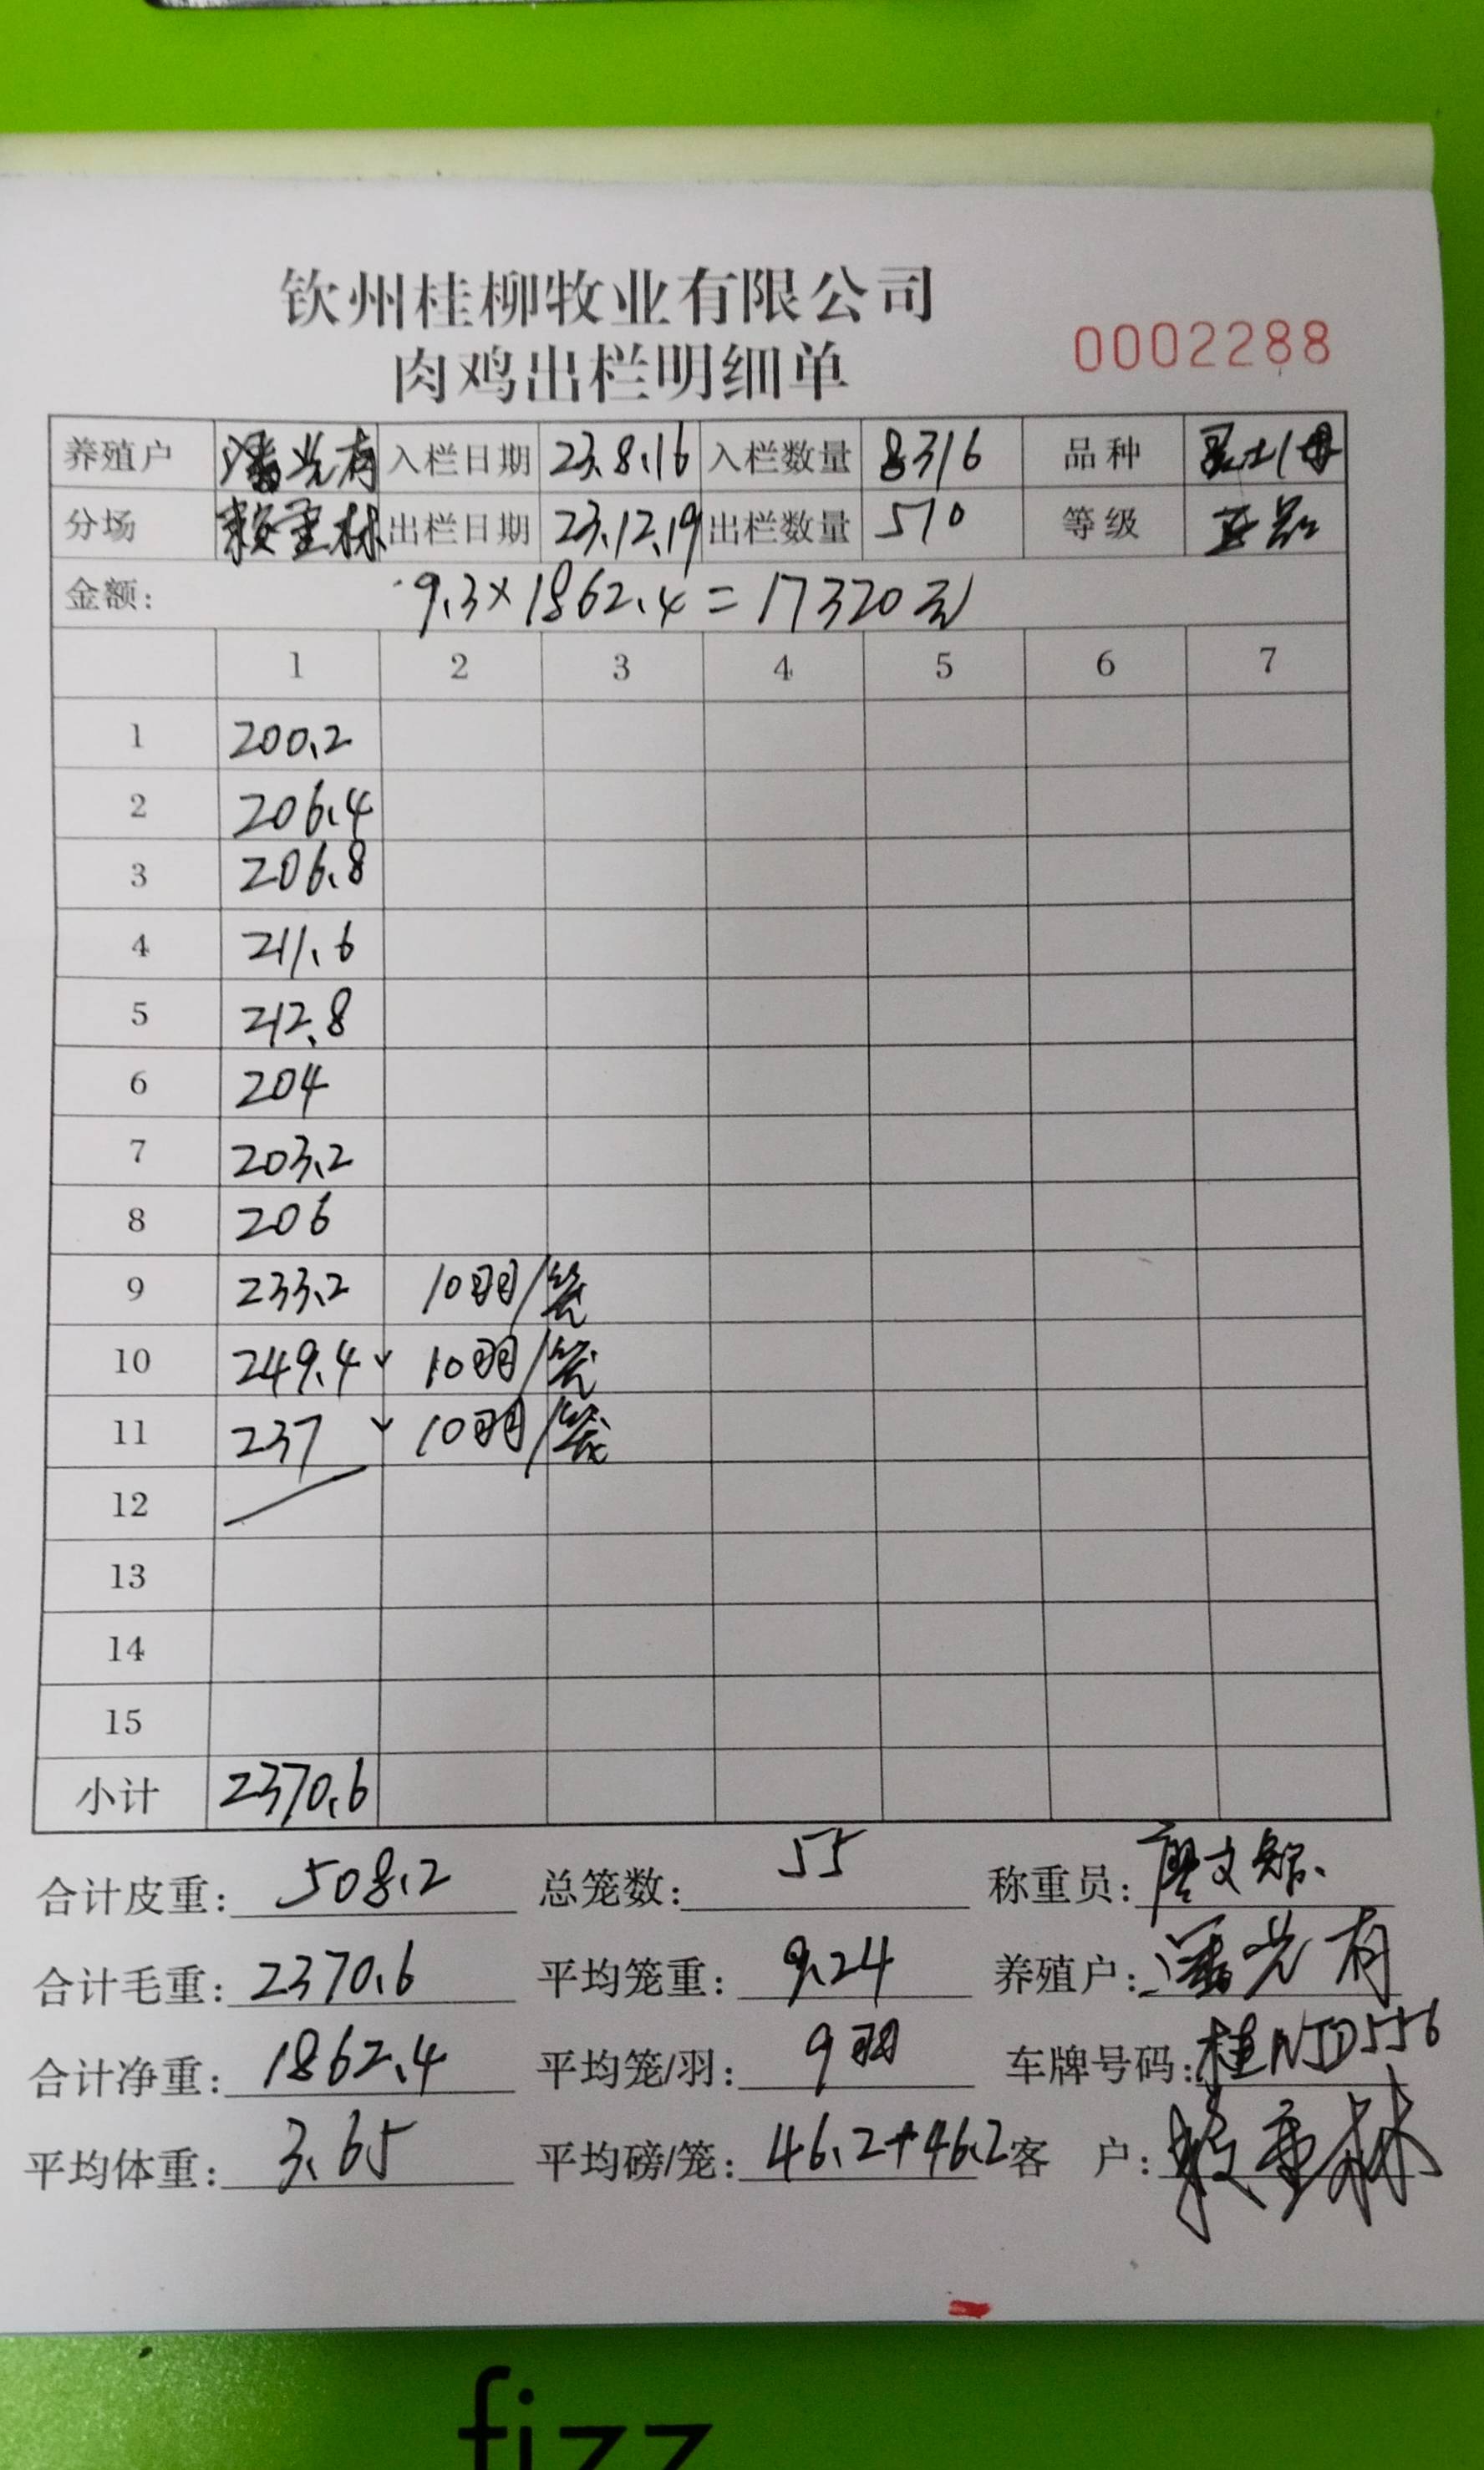 钦州桂柳牧业有限公司
肉鸡出栏明细单
0002288
养殖户 潘光有 入栏日期 23.8.16 入栏数量 8316 品种
分场 赖重林 出栏日期 23.12.19 出栏数量 510 等级 正品
金额: 9.3×1862.4=17320元
1 2 3 4 5 6 7
1 200.2
2 206.4
3 206.8
4 211.6
5 212.8
6 204
7 203.2
8 206
9 233.2 10羽/笼
10 249.4 10羽/笼
11 237 10羽/笼
12
13
14
15
小计 2370.6
合计皮重: 508.2 总笼数: 55 称重员:
合计毛重: 2370.6 平均笼重: 9.24 养殖户: 潘光有
合计净重: 1862.4 平均笼/羽: 9羽 车牌号码: 桂NJD556
平均体重: 3.65 平均磅/笼: 46.2+46.2 客 户: 赖重林
fizz